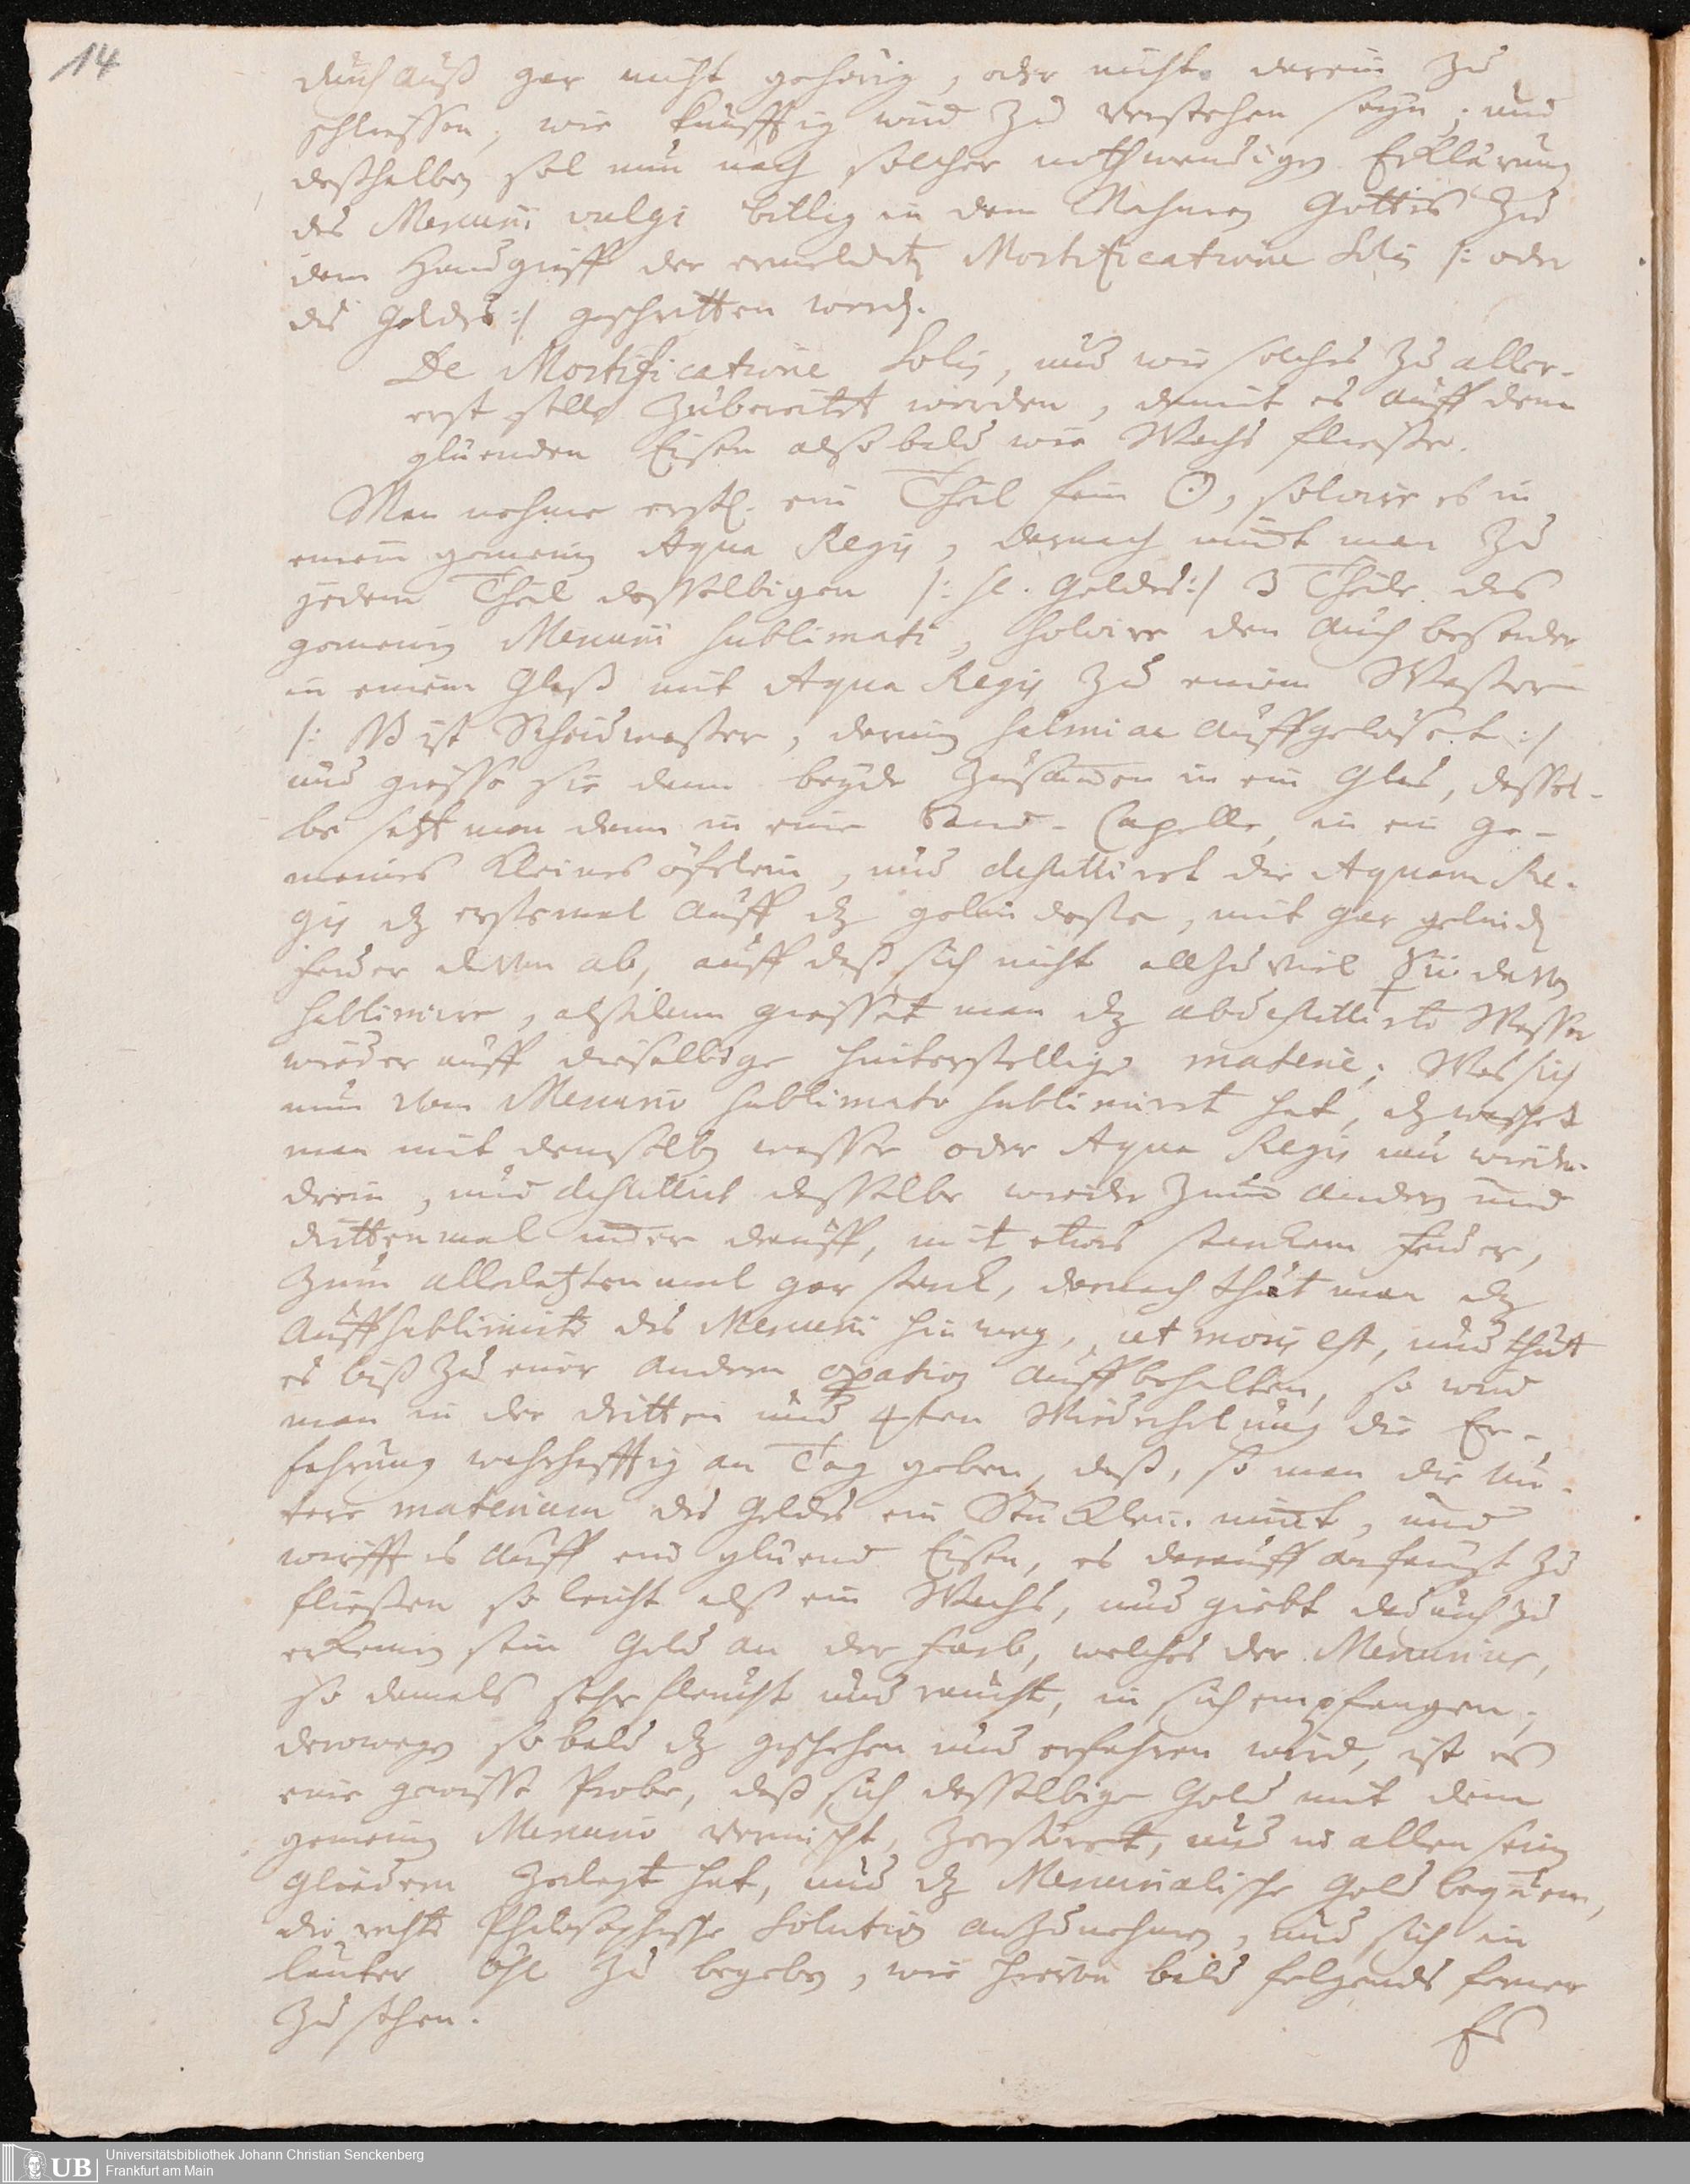 14
durch auß gar nicht gehörig, oder nichts darein zu
schliessen, wie künfftig wird zu verstehen seyn; und
deßhalben sol nun nach solcher nothwendigen Erklärung
des Mercurii vulgi billig in dem Nahmen Gottes zu
dem Handgriff der ermeldten Mortificatione Solis /: oder
des Goldes :/ geschritten werden.
De Mortificatione Solis, und wie solches zu aller-
erst solle zubereitet werden, damit es auff dem
glüenden Eisen alsobald wie Wachs fliesse.
Man nehme erstl. ein Theil fein ☉, solvire es in
einem gemeinen Aqua Regis, darnach nimt man zu
jedem Theil desselbigen /: sc. Goldes :/ 3 Theile des
gemeinen Mercurii sublimati, solvire den auch besonder
in einem Glaß mit Aqua Regis zu einem Wasser
/: NB ist Scheidwasser, darein salmiac auffgelöset :/
und giesse sie dann beyde zusammen in ein Glas, dassel-
be setzt man dann in eine Sand-Capelle, in ein ge-
meines kleines öfelein, und destilliret die Aquam Re-
gis dz erstemal auff dz gelindeste, mit gar gelinden
Feuer davon ab, auff daß sich nicht allzuviel ☿ii davon
sublimire, alßdann giesset man dz abdestillirte Wasser
wieder auff dieselbige hinterstellige materie; Was sich
nun vom Mercurio sublimato sublimiret hat, dz waschet
man mit demselben wasser oder Aqua Regis nur wieder
drein, und destillirt dasselbe wieder zum andern und
drittenmal immer drauff, mit etwas starckem Feuer,
zum allerletztenmal gar starck, darnach thut man dz
Auffsublimirte des Mercurii hinweg, ut moris est, und thut
es biß zu einer andern operation auffbehalten, so wird
man in der dritten und 4ten Wiederholung die Er-
fahrung wahrhafftig an Tag geben, daß, so man die un-
tere materiam des Goldes ein Stücklein nimt, und
wirfft es auff ein glüend Eisen, es darauff anfangt zu
fliessen so leicht alß ein Wachs, und giebt dadurch zu
erkennen sein Gold an der Farb, welches der Mercurius,
so damals sehr fleucht und raucht, in sich empfangen;
derowegen so bald dz geschehen und erfahren wird, ist es
eine gewisse Probe, daß sich dasselbige Gold mit dem
gemeinen Mercurio vermischt, zerstöret, und in allen seinen
Gliedern zerlegt hat, und dz Mercurialische Gold bequem,
die rechte Philosophische Solution anzunehmen, und sich in
lauter Öhl zu begeben, wie hievon bald folgends ferner
zu sehen.
Es
UB
Universitätsbibliothek Johann Christian Senckenberg
Frankfurt am Main